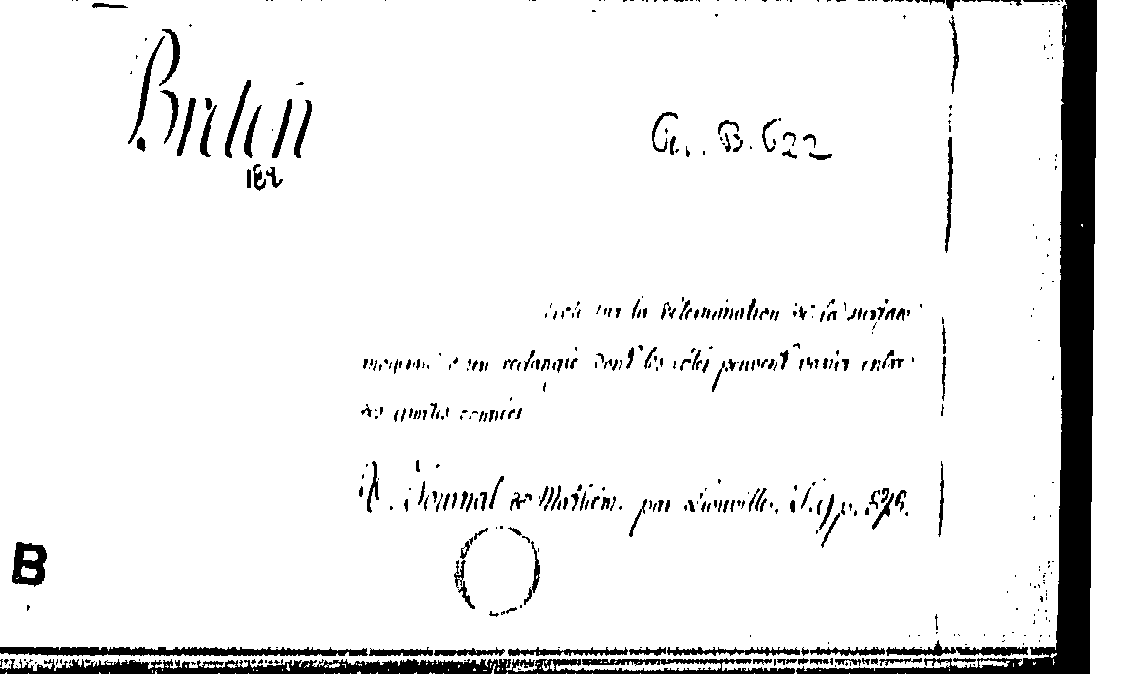 Breton
184
G. B. 622
Note sur la détermination de la surface
moyenne d'un rectangle dont les côtés peuvent varier entre
des limites données
V. Journal de Mathém. par Liouville, T. p.
B